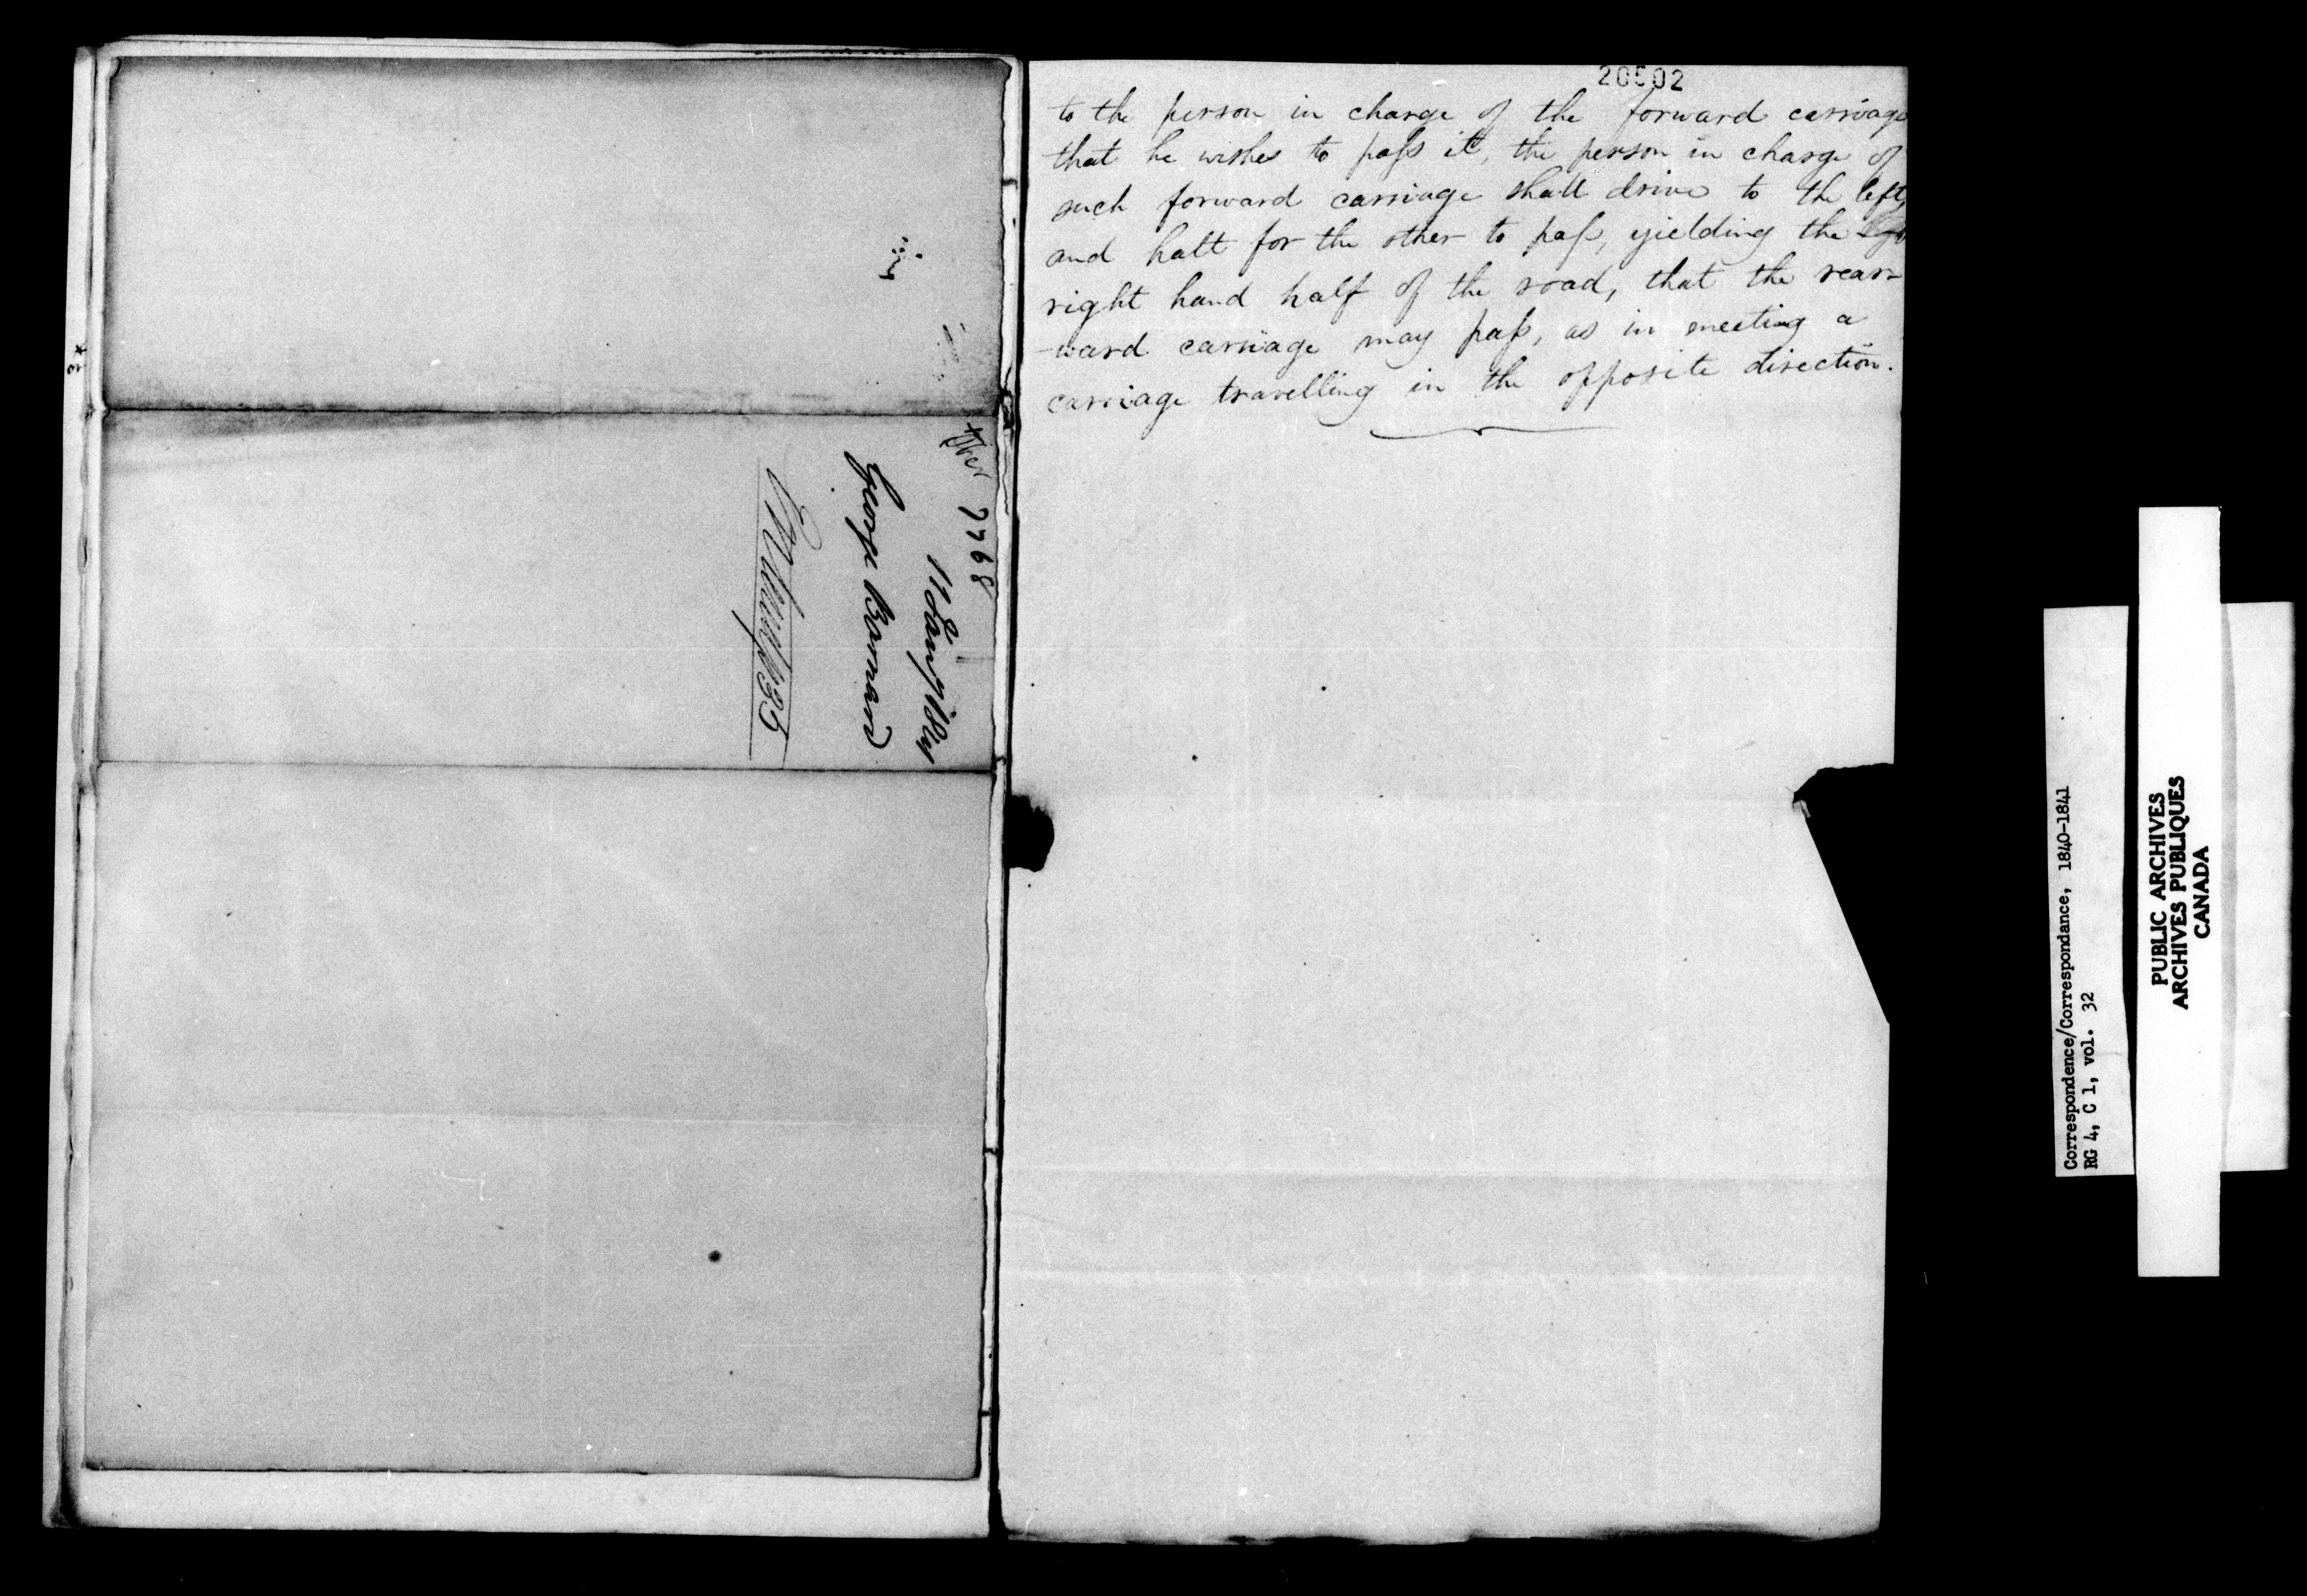 8944
11 Jany 1841
George Barnard
20502
to the person in charge of the forward carriage
that he wishes to paſs it, the person in charge of
such forward carriage shall drive to the left,
and halt for the other to paſs, yielding the
right hand half of the road, that the rear-
-ward carriage may paſs, as in meeting a
carriage travelling in the opposite direction.
Correspondence/Correspondance, 1840-1841
RG 4, C 1, vol. 32
PUBLIC ARCHIVES
ARCHIVES PUBLIQUES
CANADA